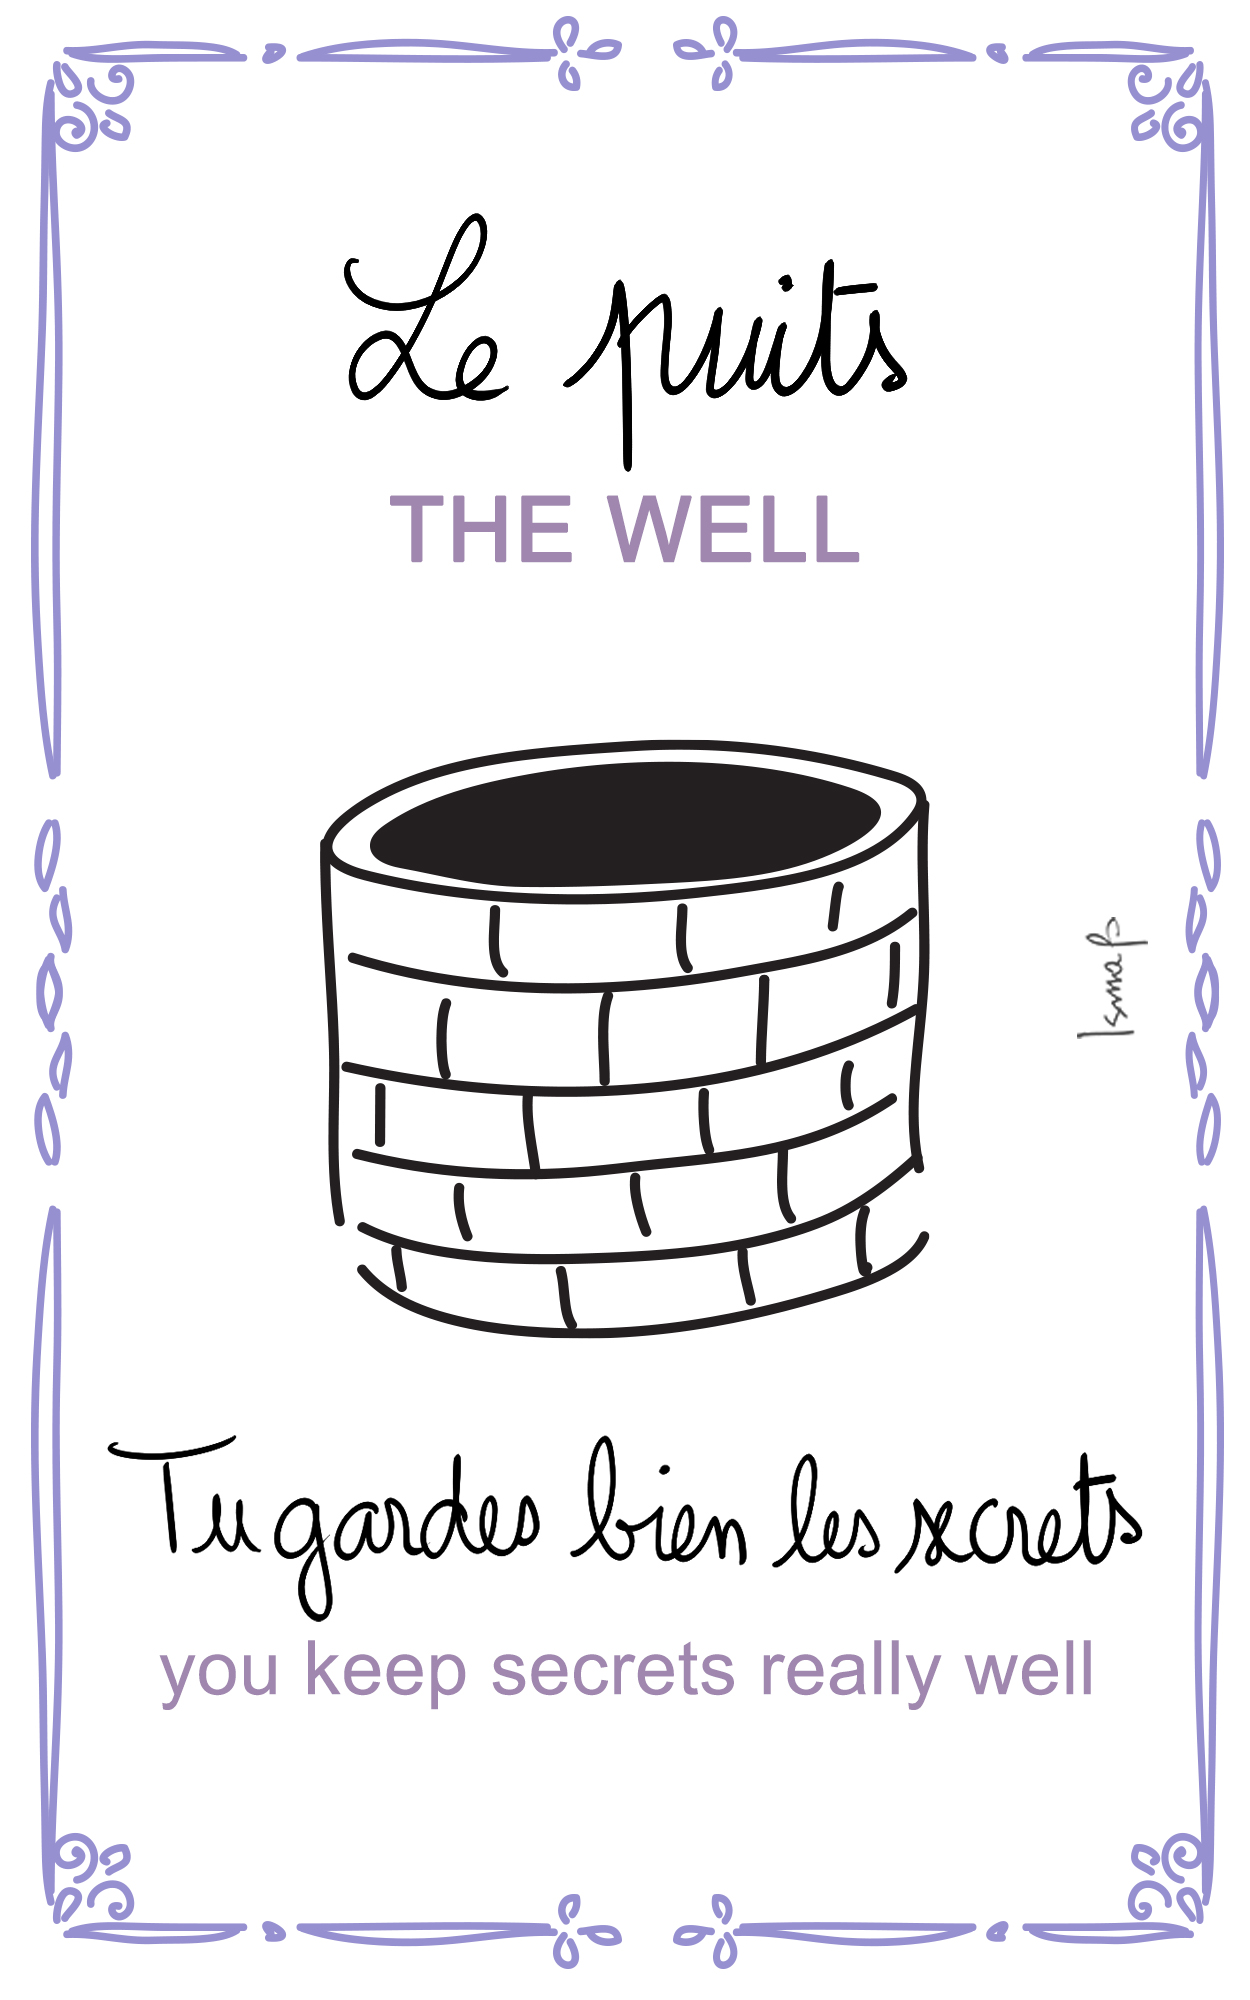 Le puits
THE WELL
Isma B
Tu gardes bien les secrets
you keep secrets really well